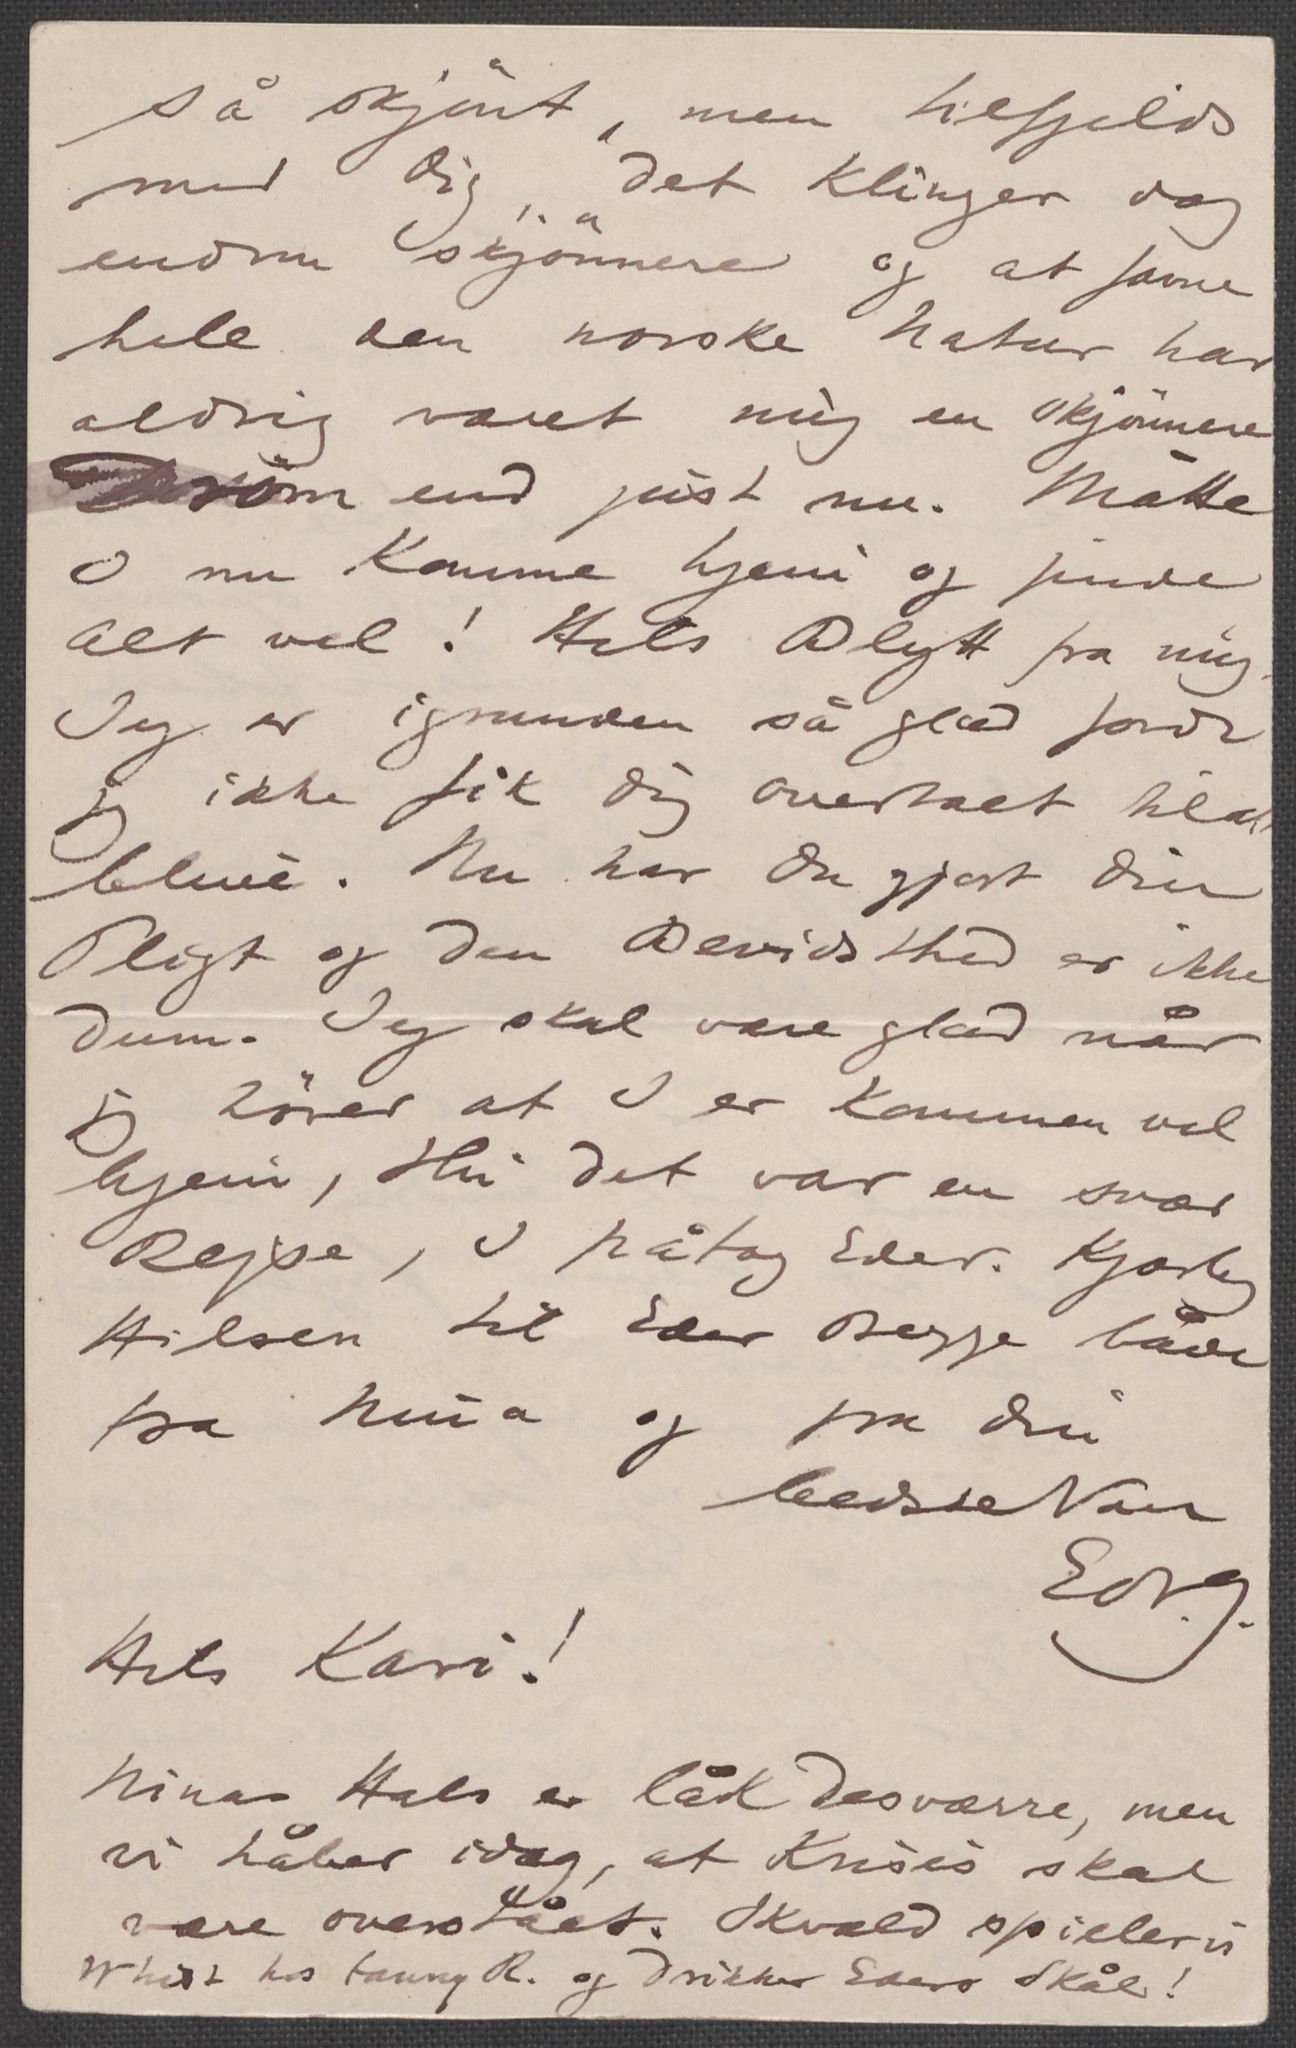 så skjönt, men tilfjelds
med dig, det klinger dog
endnu skjönnere og at favne
hele den norske Natur har
aldrig været mig en skjönnere
Dröm end just nu. Måtte
I nu komme hjem og finde
alt vel! Hils Blytt fra mig.
Jeg er igrunden så glad fordi
jeg ikke fik dig overtalt til at
blive. Nu har du gjort din
Pligt og den Bevidsthed er ikke
dum. Jeg skal være glad når
jeg hörer at I er kommen vel
hjem, thi det var en svær
Rejse, I påtog Eder. Kjærlig
Hilsen til Eder Begge både
fra Nina og fra din
bedste Ven
Edv. G.
Hils Kari!
Ninas Hals er låk desværre, men
vi håber idag, at Krisis skal
være overstået. Ikvæld spiller vi
Whist hos Fanny R. og drikker Eders Skål!